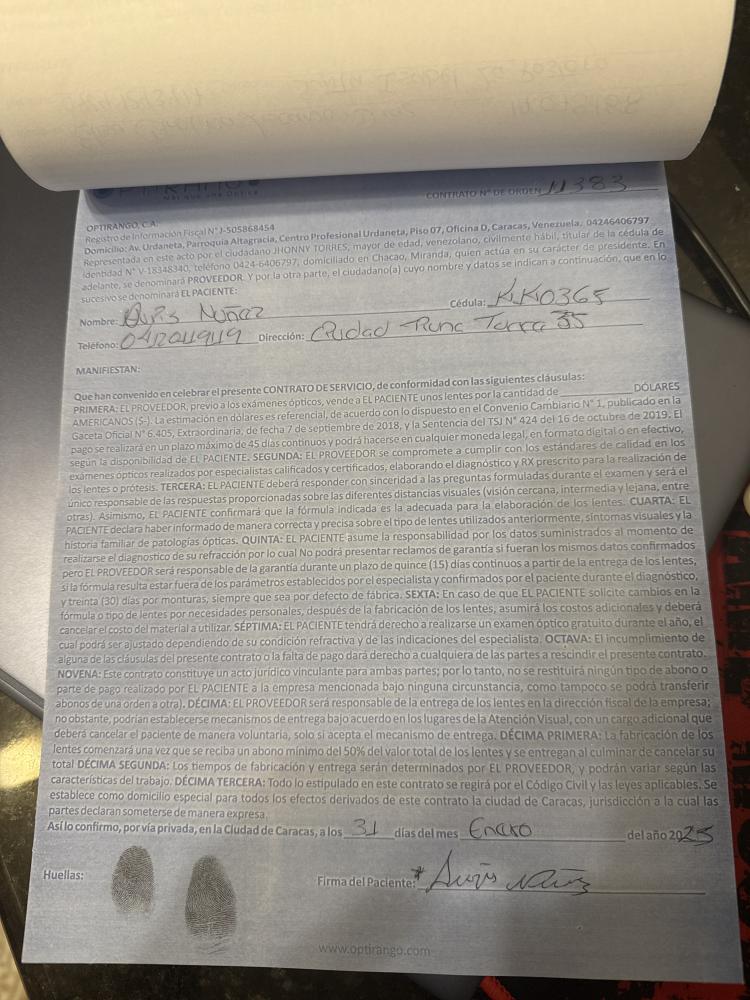 CONTRATO N° DE ORDEN 11383
OPTIRANGO, C.A.
Registro de Información Fiscal N° J-505868454
Domicilio: Av. Urdaneta, Parroquia Altagracia, Centro Profesional Urdaneta, Piso 07, Oficina D, Caracas, Venezuela, 04246406797
Representada en este acto por el ciudadano JHONNY TORRES, mayor de edad, venezolano, civilmente hábil, titular de la cédula de
identidad N° V-18348340, teléfono 0424-6406797, domiciliado en Chacao, Miranda, quien actúa en su carácter de presidente. En
adelante, se denominará PROVEEDOR. Y por la otra parte, el ciudadano(a) cuyo nombre y datos se indican a continuación, que en lo
sucesivo se denominará EL PACIENTE:
Nombre: Nuñez Cédula:
Teléfono: Dirección: 35
MANIFIESTAN:
Que han convenido en celebrar el presente CONTRATO DE SERVICIO, de conformidad con las siguientes cláusulas:
PRIMERA: EL PROVEEDOR, previo a los exámenes ópticos, vende a EL PACIENTE unos lentes por la cantidad de ____________ DÓLARES
AMERICANOS ($-). La estimación en dólares es referencial, de acuerdo con lo dispuesto en el Convenio Cambiario N° 1, publicado en la
Gaceta Oficial N° 6.405, Extraordinaria, de fecha 7 de septiembre de 2018, y la Sentencia del TSJ N° 424 del 16 de octubre de 2019. El
pago se realizará en un plazo máximo de 45 días continuos y podrá hacerse en cualquier moneda legal, en formato digital o en efectivo,
según la disponibilidad de EL PACIENTE. SEGUNDA: EL PROVEEDOR se compromete a cumplir con los estándares de calidad en los
exámenes ópticos realizados por especialistas calificados y certificados, elaborando el diagnóstico y RX prescrito para la realización de
los lentes o prótesis. TERCERA: EL PACIENTE deberá responder con sinceridad a las preguntas formuladas durante el examen y será el
único responsable de las respuestas proporcionadas sobre las diferentes distancias visuales (visión cercana, intermedia y lejana, entre
otras). Asimismo, EL PACIENTE confirmará que la fórmula indicada es la adecuada para la elaboración de los lentes. CUARTA: EL
PACIENTE declara haber informado de manera correcta y precisa sobre el tipo de lentes utilizados anteriormente, síntomas visuales y la
historia familiar de patologías ópticas. QUINTA: EL PACIENTE asume la responsabilidad por los datos suministrados al momento de
realizarse el diagnostico de su refracción por lo cual No podrá presentar reclamos de garantía si fueran los mismos datos confirmados
pero EL PROVEEDOR será responsable de la garantía durante un plazo de quince (15) días continuos a partir de la entrega de los lentes,
si la fórmula resulta estar fuera de los parámetros establecidos por el especialista y confirmados por el paciente durante el diagnóstico,
y treinta (30) días por monturas, siempre que sea por defecto de fábrica. SEXTA: En caso de que EL PACIENTE solicite cambios en la
fórmula o tipo de lentes por necesidades personales, después de la fabricación de los lentes, asumirá los costos adicionales y deberá
cancelar el costo del material a utilizar. SÉPTIMA: EL PACIENTE tendrá derecho a realizarse un examen óptico gratuito durante el año, el
cual podrá ser ajustado dependiendo de su condición refractiva y de las indicaciones del especialista. OCTAVA: El incumplimiento de
alguna de las cláusulas del presente contrato o la falta de pago dará derecho a cualquiera de las partes a rescindir el presente contrato.
NOVENA: Este contrato constituye un acto jurídico vinculante para ambas partes; por lo tanto, no se restituirá ningún tipo de abono o
parte de pago realizado por EL PACIENTE a la empresa mencionada bajo ninguna circunstancia, como tampoco se podrá transferir
abonos de una orden a otra). DÉCIMA: EL PROVEEDOR será responsable de la entrega de los lentes en la dirección fiscal de la empresa;
no obstante, podrían establecerse mecanismos de entrega bajo acuerdo en los lugares de la Atención Visual, con un cargo adicional que
deberá cancelar el paciente de manera voluntaria, solo si acepta el mecanismo de entrega. DÉCIMA PRIMERA: La fabricación de los
lentes comenzará una vez que se reciba un abono mínimo del 50% del valor total de los lentes y se entregan al culminar de cancelar su
total DÉCIMA SEGUNDA: Los tiempos de fabricación y entrega serán determinados por EL PROVEEDOR, y podrán variar según las
características del trabajo. DÉCIMA TERCERA: Todo lo estipulado en este contrato se regirá por el Código Civil y las leyes aplicables. Se
establece como domicilio especial para todos los efectos derivados de este contrato la ciudad de Caracas, jurisdicción a la cual las
partes declaran someterse de manera expresa.
Así lo confirmo, por vía privada, en la Ciudad de Caracas, a los 31 días del mes Enero del año 2025
Huellas: Firma del Paciente:
www.optirango.com